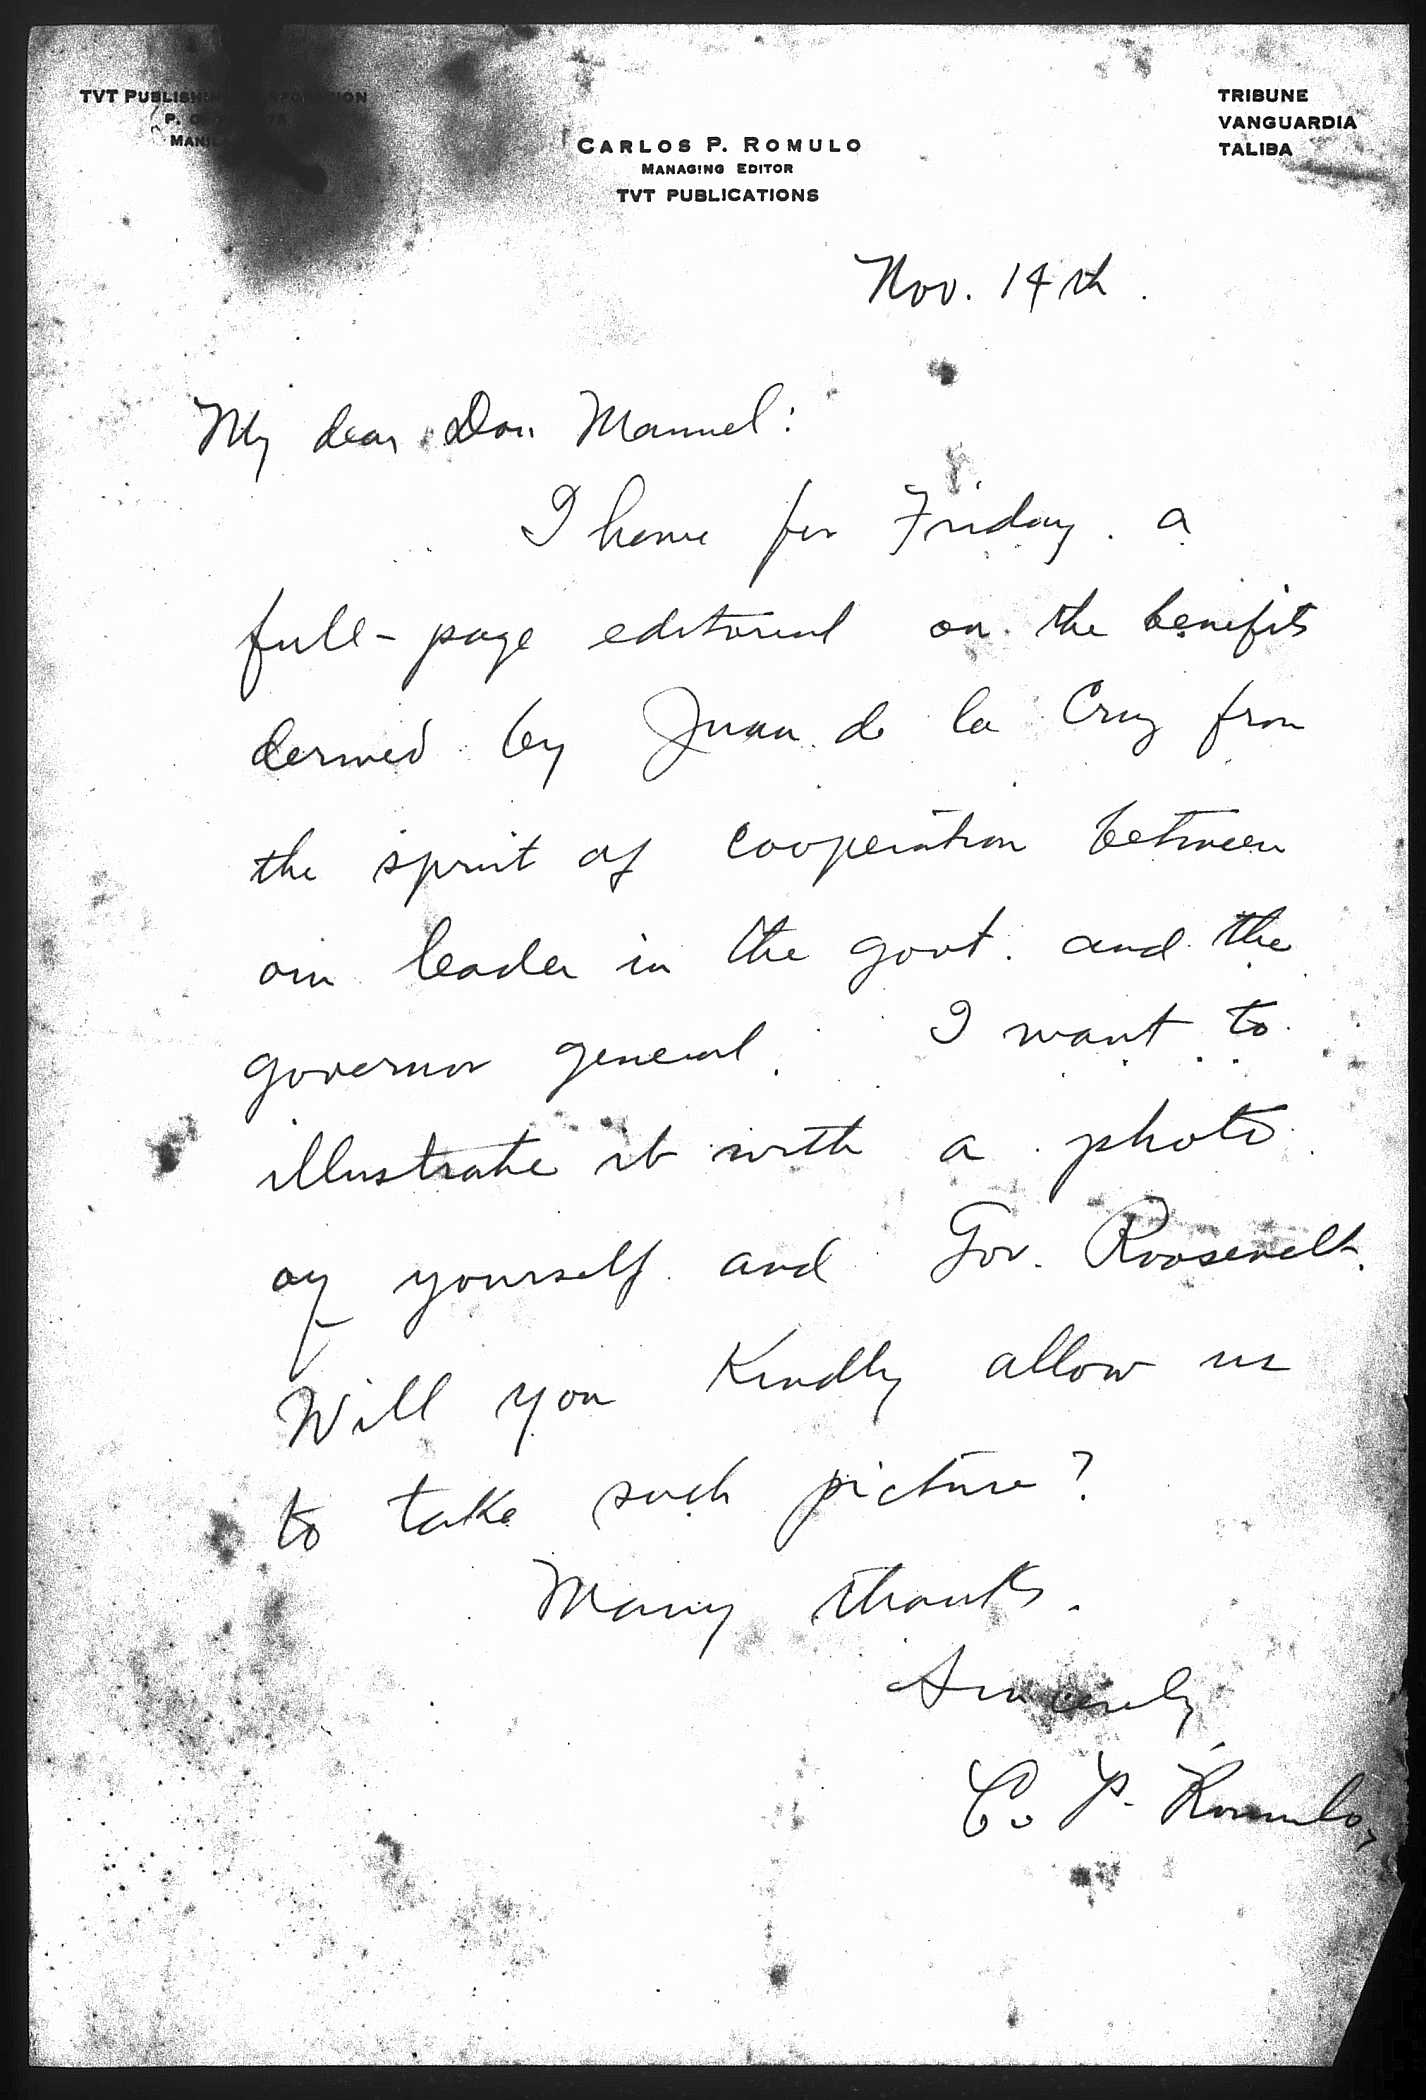 TVT PUBLISHING CORPORATION
P. O.
MANILA
CARLOS P. ROMULO
MANAGING EDITOR
TVT PUBLICATIONS
TRIBUNE
VANGUARDIA
TALIBA
Nov. 14th.
My dear Don Manuel:
I have for Friday a
full-page editorial on the benefits
derived by Juan de la Cruz from
the spirit of cooperation between
our leader in the govt. and the
governor general. I want to
illustrate it with a photo
of yourself and Gov. Roosevelt.
Will you kindly allow us
to take such picture?
Many thanks.
Sincerely,
C. P. Romulo